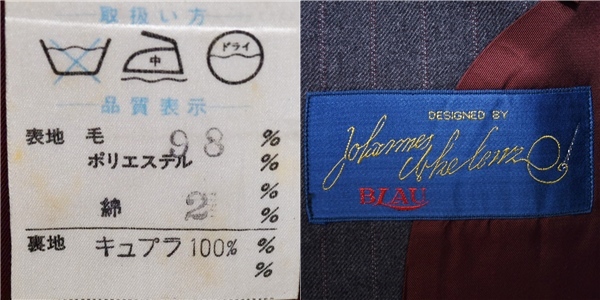 取扱い方
中
ドライ
品質表示
表地 毛 98 %
ポリエステル %
%
綿 2 %
裏地 キュプラ 100% %
%
DESIGNED BY
Johannes
BLAU